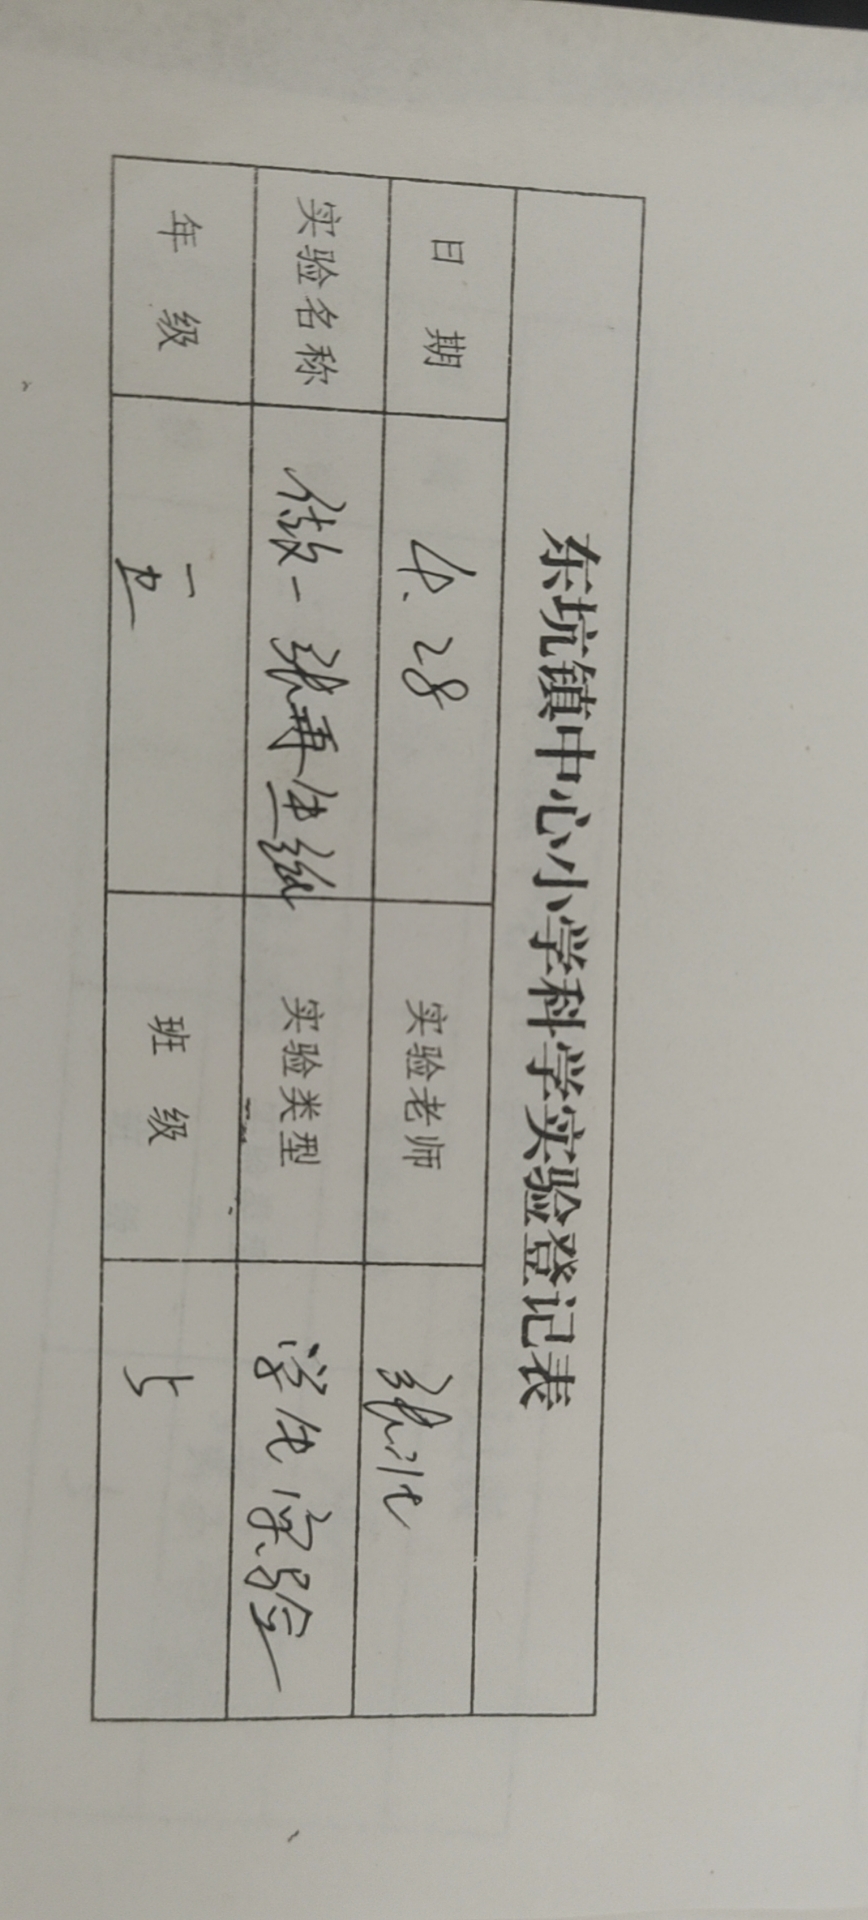 东坑镇中心小学科学实验登记表
日 期 4.28 实验老师 张
实验名称 做一张再生纸 实验类型 学生实验
年 级 五 班 级 5